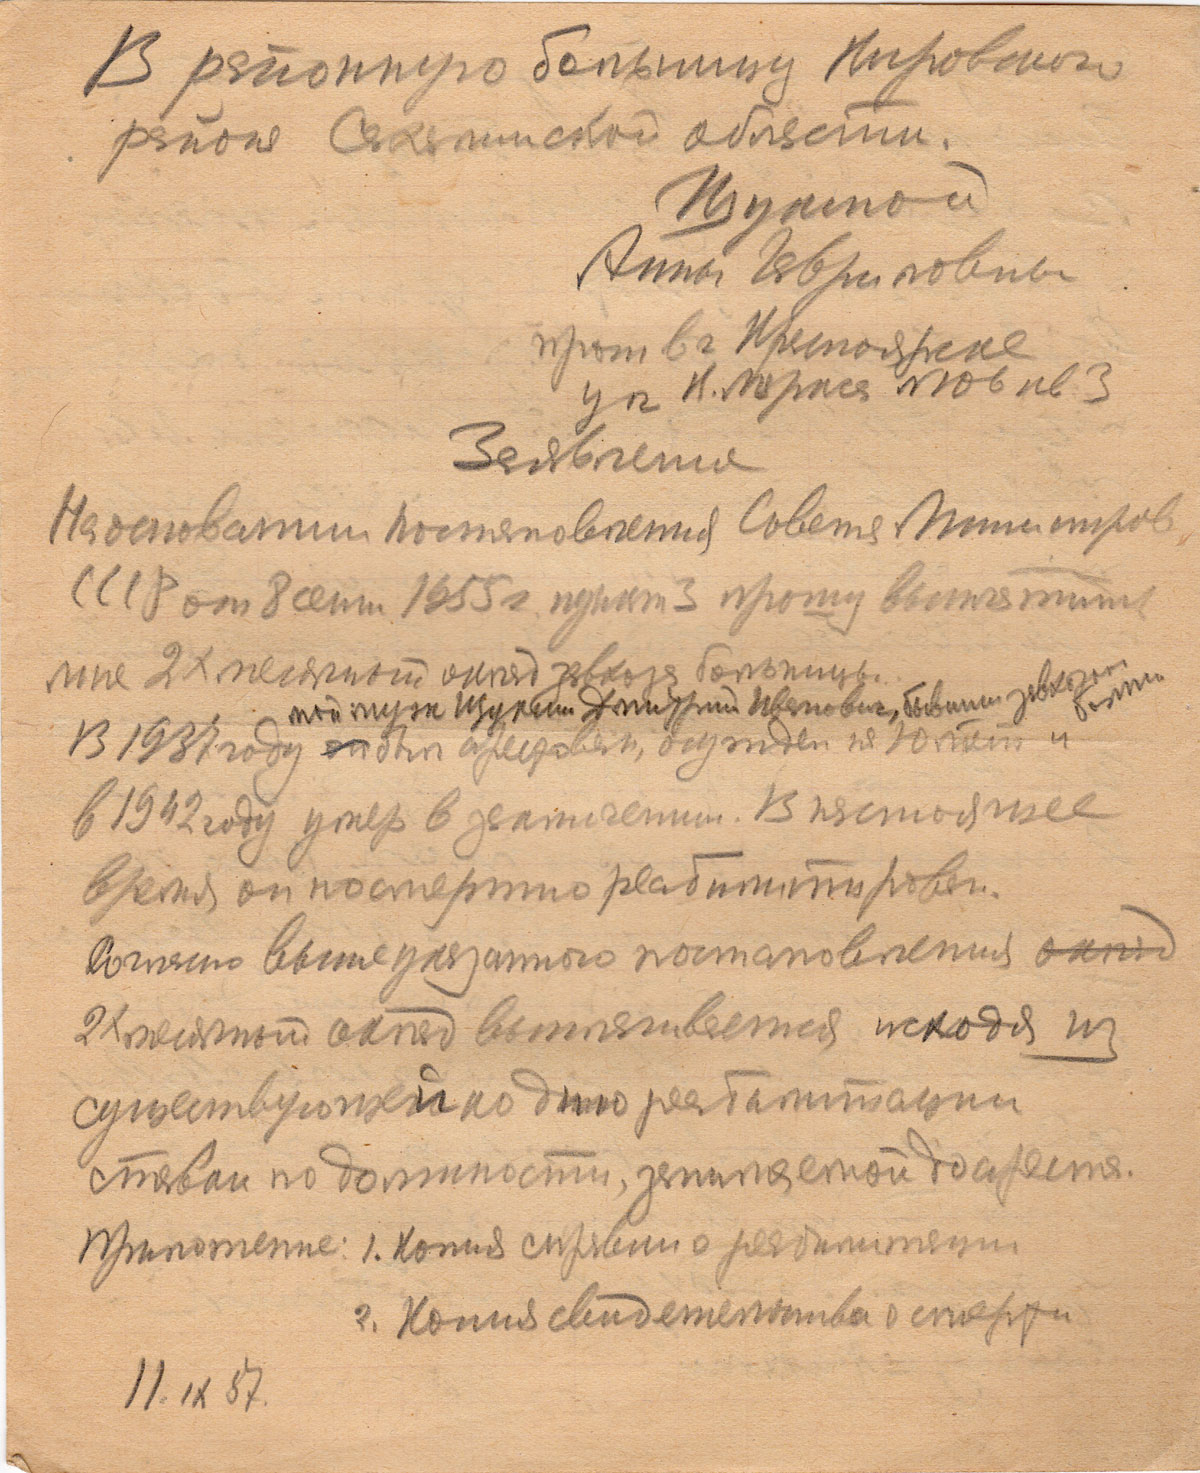 В районную больницу Кировского
района Сахалинской области.
Щукиной
Анны Гавриловны
прож в г Красноярске
ул К. Маркса №106 кв 3
Заявление
На основании постановления Совета Министров
СССР от 8 сент. 1955 г. пункт 3 прошу выплатить
мне 2х месячный оклад завхоза больницы.
мой муж Щукин Дмитрий Иванович, бывший завхозом больн
В 1937 году он был арестован, осужден на 10 лет и
в 1942 году умер в заключении. В настоящее
время он посмертно реабилитирован.
Согласно вышеуказанного постановления оклад
2х месячный оклад выплачивается исходя из
существующей ко дню реабилитации
ставки по должности, занимаемой до ареста.
Приложение: 1. Копия справки о реабилитации
2. Копия свидетельства о смерти
11. IX 57.